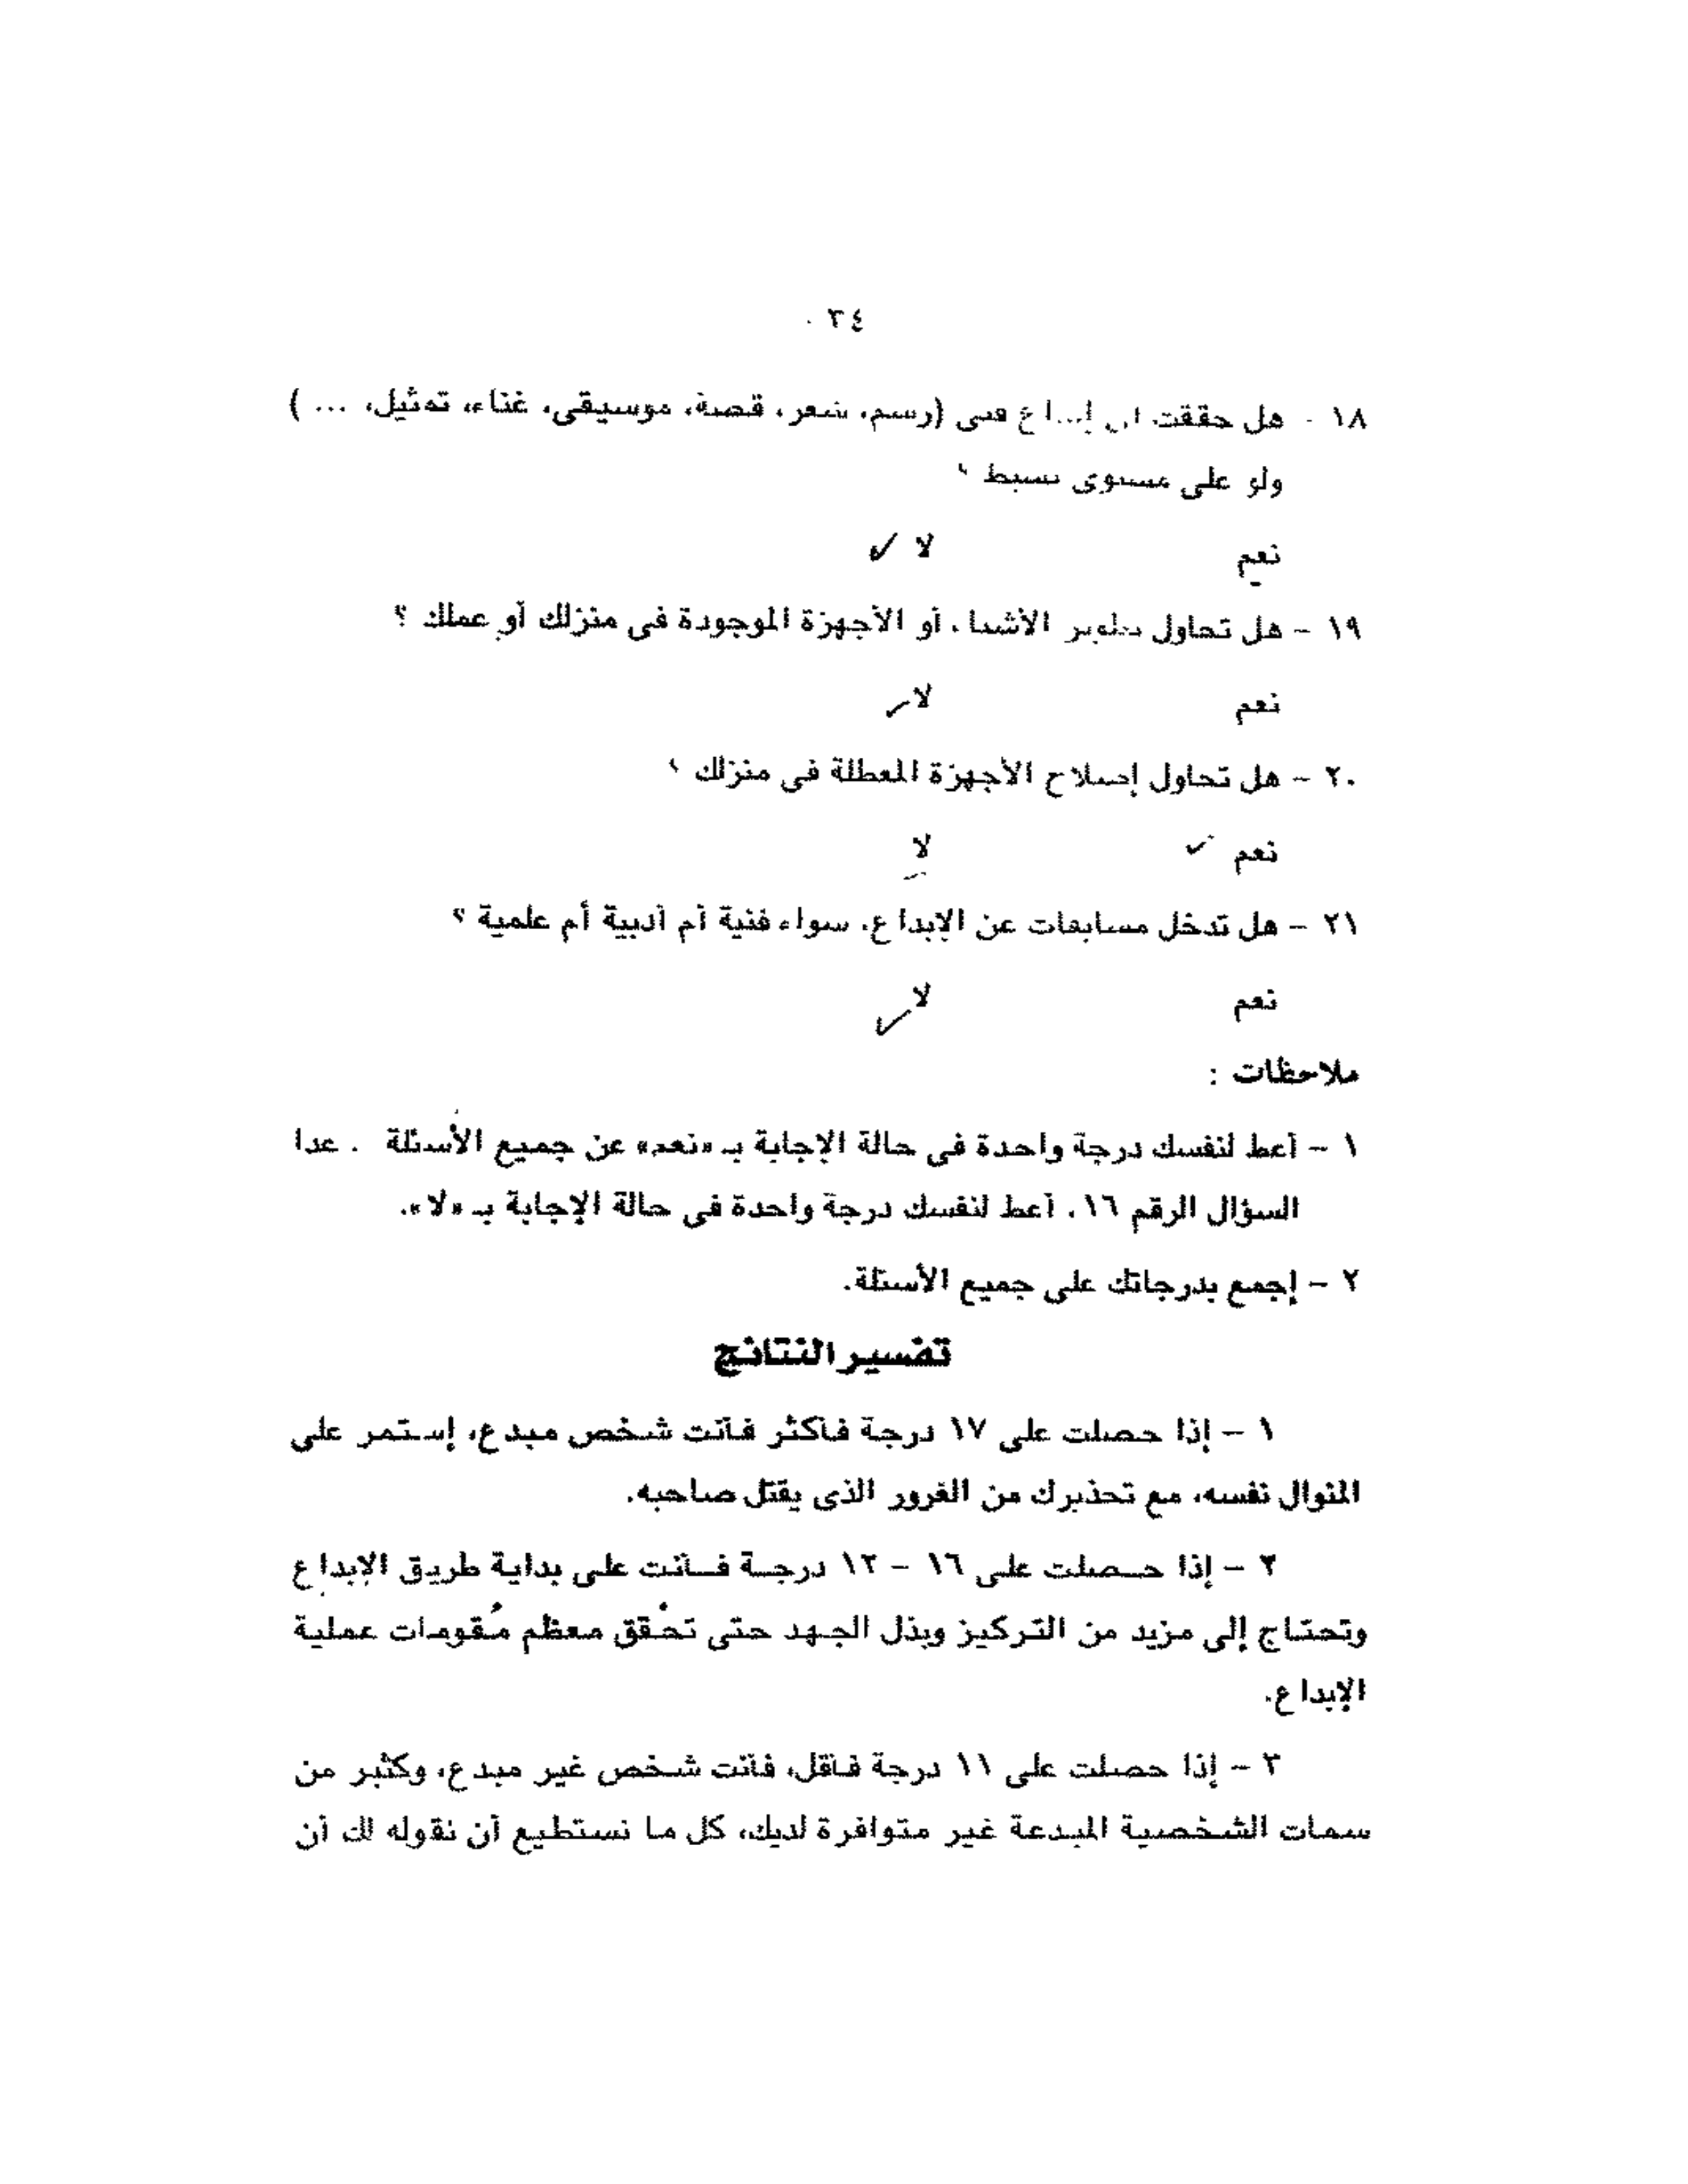 ٣٤
١٨ - هل حققت أى إبداع فى (رسم، شعر، قصة، موسيقى، غناء، تمثيل، ... )
ولو على مستوى بسيط ؟
نعم لا ✓
١٩ - هل تحاول تطوير الأشياء أو الأجهزة الموجودة فى منزلك أو عملك ؟
نعم لا ✓
٢٠ - هل تحاول إصلاح الأجهزة المعطلة فى منزلك ؟
نعم ✓ لا
٢١ - هل تدخل مسابقات عن الإبداع، سواء فنية أم أدبية أم علمية ؟
نعم لا ✓
ملاحظات :
١ - أعط لنفسك درجة واحدة فى حالة الإجابة بـ «نعم» عن جميع الأسئلة . عدا
السؤال الرقم ١٦، أعط لنفسك درجة واحدة فى حالة الإجابة بـ «لا».
٢ - إجمع بدرجاتك على جميع الأسئلة.
تفسير النتائج
١ - إذا حصلت على ١٧ درجة فأكثر فأنت شخص مبدع، إستمر على
المنوال نفسه، مع تحذيرك من الغرور الذى يقتل صاحبه.
٢ - إذا حصلت على ١٦ - ١٢ درجة فأنت على بداية طريق الإبداع
وتحتاج إلى مزيد من التركيز وبذل الجهد حتى تحُقق معظم مُقومات عملية
الإبداع.
٣ - إذا حصلت على ١١ درجة فأقل، فأنت شخص غير مبدع، وكثير من
سمات الشخصية المبدعة غير متوافرة لديك، كل ما نستطيع أن نقوله لك أن